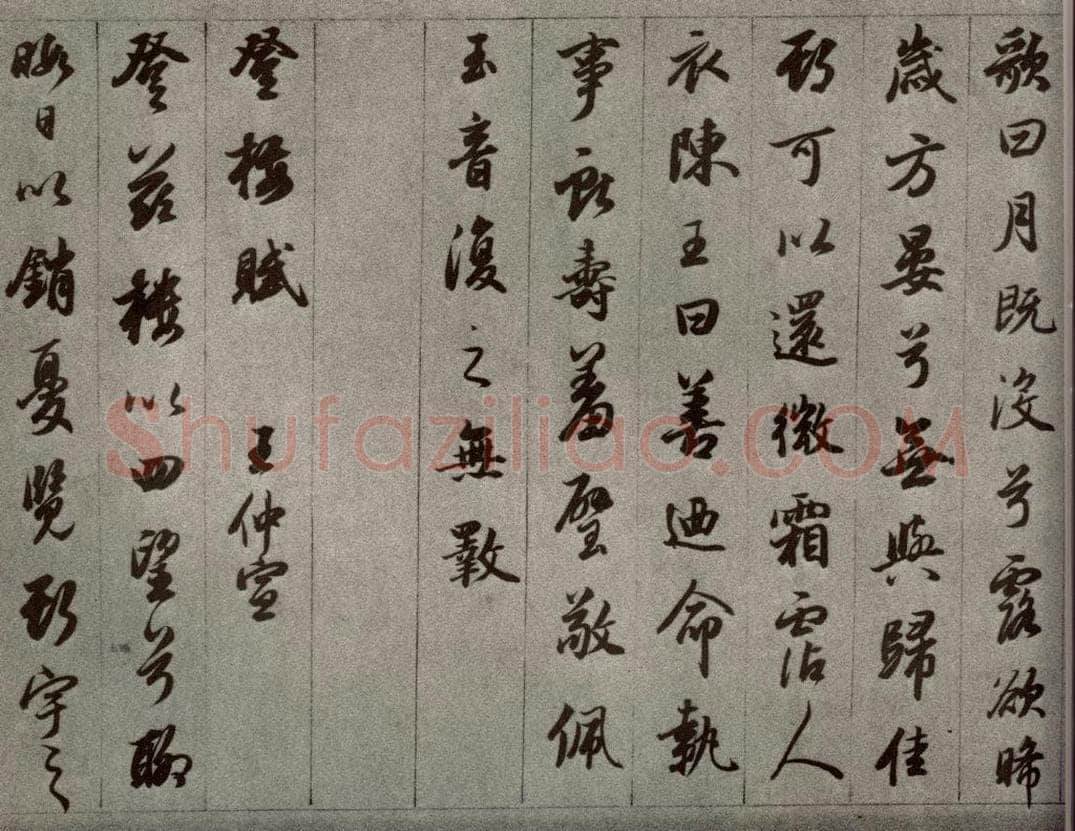 歌曰月既沒兮露欲晞
歲方晏兮無與歸佳
期可以還微霜霑人
衣陳王曰善迺命執
事獻壽羞璧敬佩
玉音復之無斁
登樓賦 王仲宣
登茲樓以四望兮聊
暇日以銷憂覽斯宇之
Shufaziliao.COM